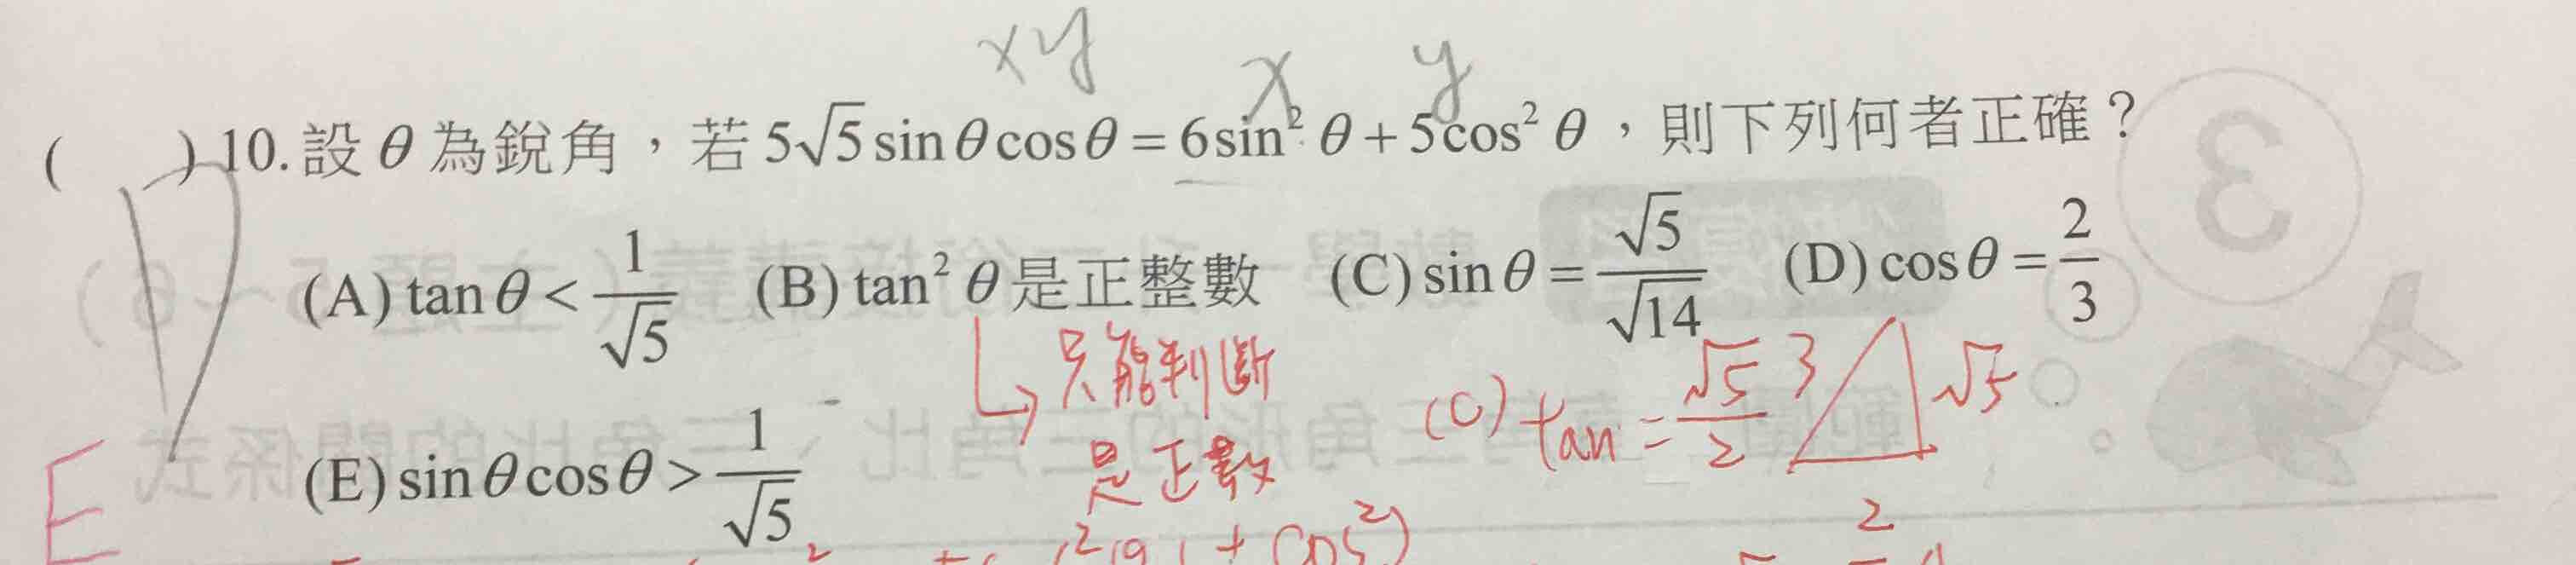 xy x y
( ) 10. 設 θ 為銳角，若 5√5 sin θ cos θ = 6sin² θ + 5cos² θ，則下列何者正確？
(A) tan θ < 1/√5 (B) tan² θ 是正整數 (C) sin θ = √5/√14 (D) cos θ = 2/3
只能判斷
是正數
(C) tan = √5/2 3 √5
2
(E) sin θ cos θ > 1/√5
E